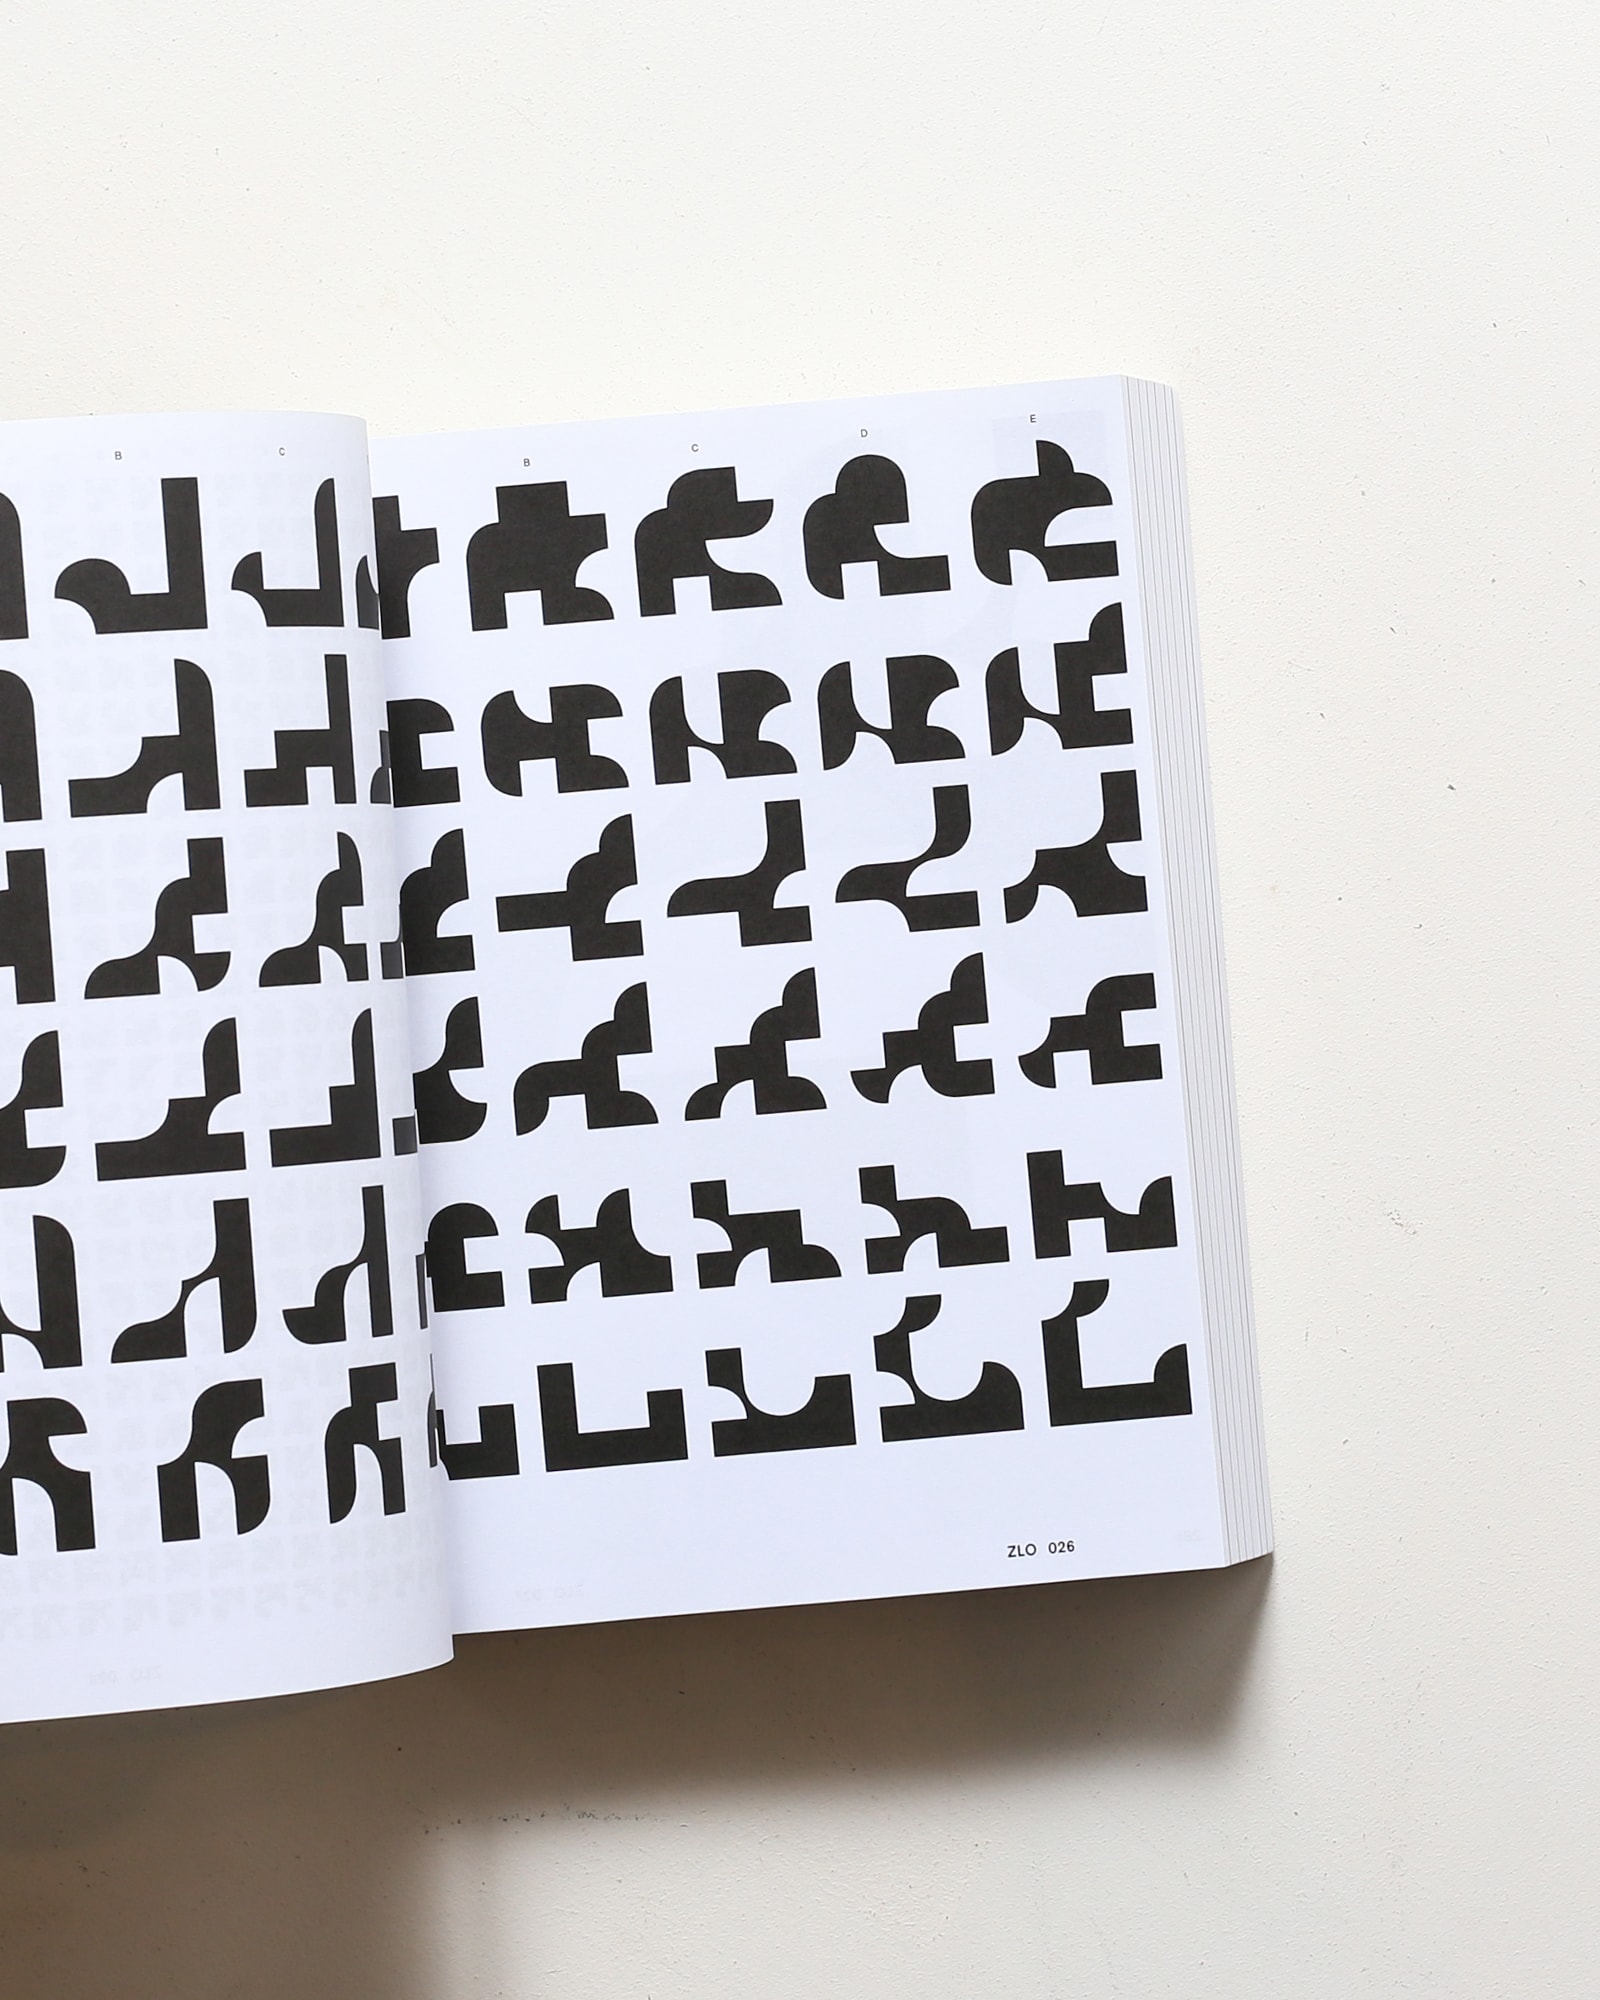 B C
B C D E
ZLO 026